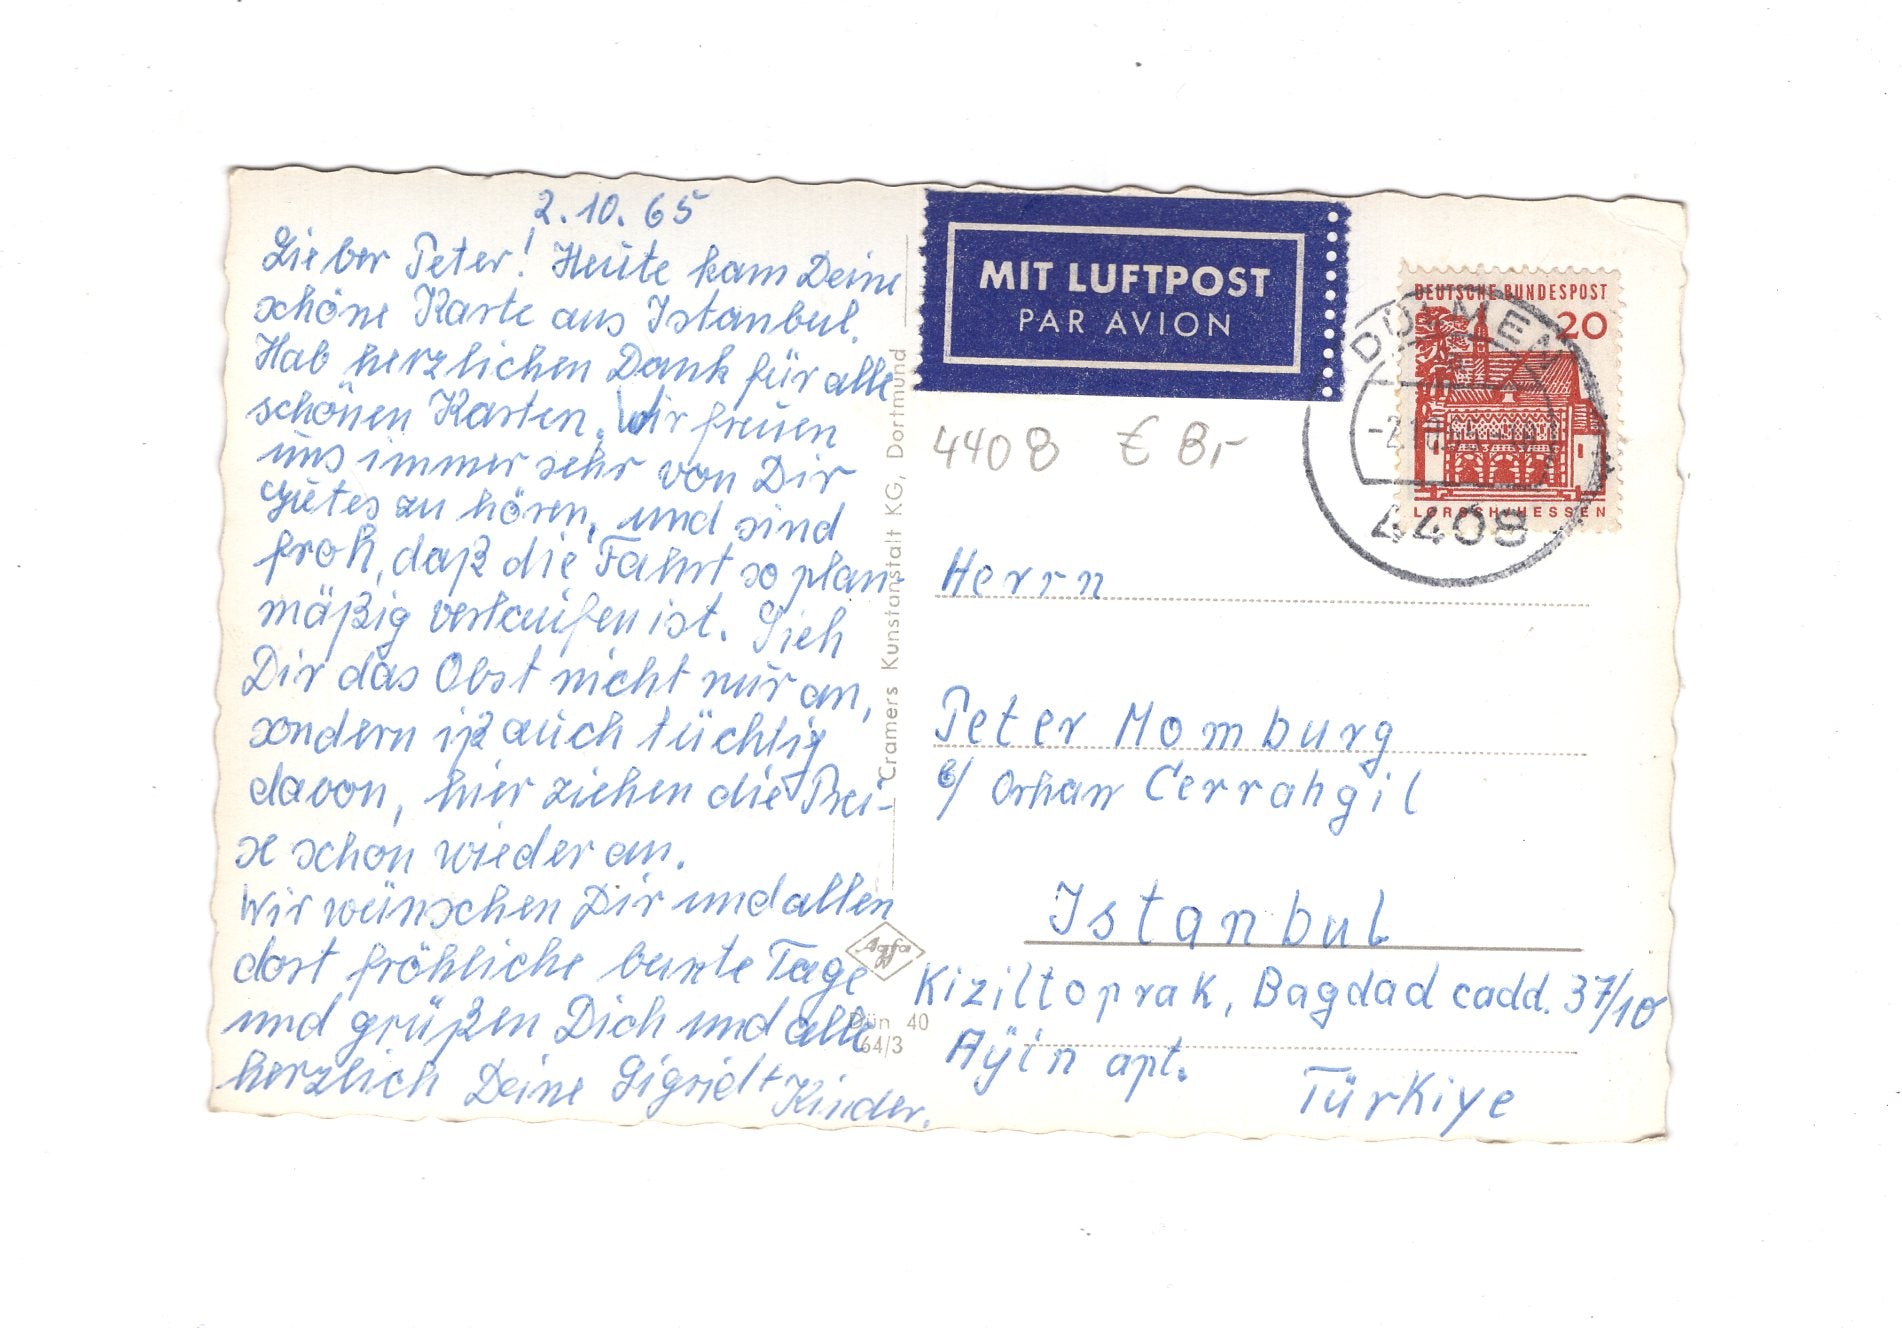 2.10.65
Lieber Peter! Heute kam Deine
schöne Karte aus Istanbul.
Hab herzlichen Dank für alle
schönen Karten. Wir freuen
uns immer sehr von Dir
Gutes zu hören, und sind
froh, daß die Fahrt so plan-
mäßig verlaufen ist. Sieh
Dir das Obst nicht nur an,
sondern iß auch tüchtig
davon, hier ziehen die Prei-
se schon wieder an.
Wir wünschen Dir und allen
dort fröhliche bunte Tage
und grüßen Dich und alle
herzlich Deine Sigrid + Kinder.
Cramers Kunstanstalt KG, Dortmund
Agfa
Dün 40
64/3
MIT LUFTPOST
PAR AVION
4408 € 8,-
DEUTSCHE BUNDESPOST
20
LORSCH/HESSEN
DÜLMEN
4408
Herrn
Peter Momburg
c/ Orhan Cerrahgil
Istanbul
Kiziltoprak, Bagdad cadd. 37/10
Aÿin apt.
Türkiye